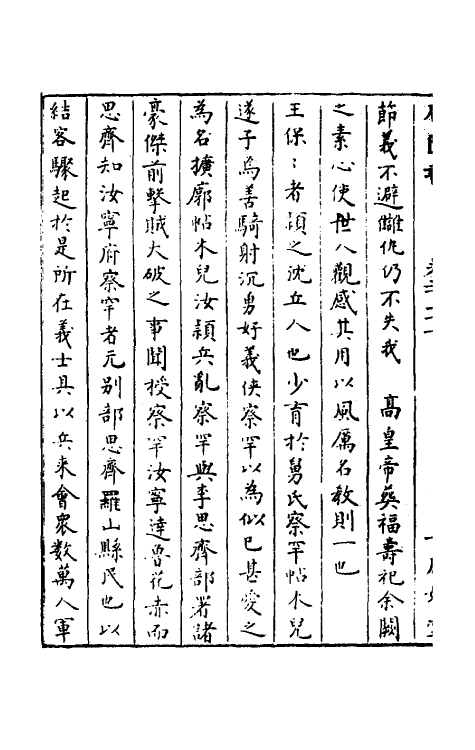 節義不避讎仇仍不失我　高皇帝葬福壽祀余闕
之素心使世人觀感其用以風厲名教則一也
王保〻者潁之沈丘人也少育於舅氏察罕帖木兒
遂子焉善騎射沉勇好義俠察罕以為似已甚愛之
為名擴廓帖木兒汝潁兵亂察罕與李思齊部署諸
豪傑前擊賊大破之事聞授察罕汝寧達魯花赤而
思齊知汝寧府察罕者元别部思齊羅山縣民也以
結客驟起於是所在義士具以兵来會衆数萬人軍